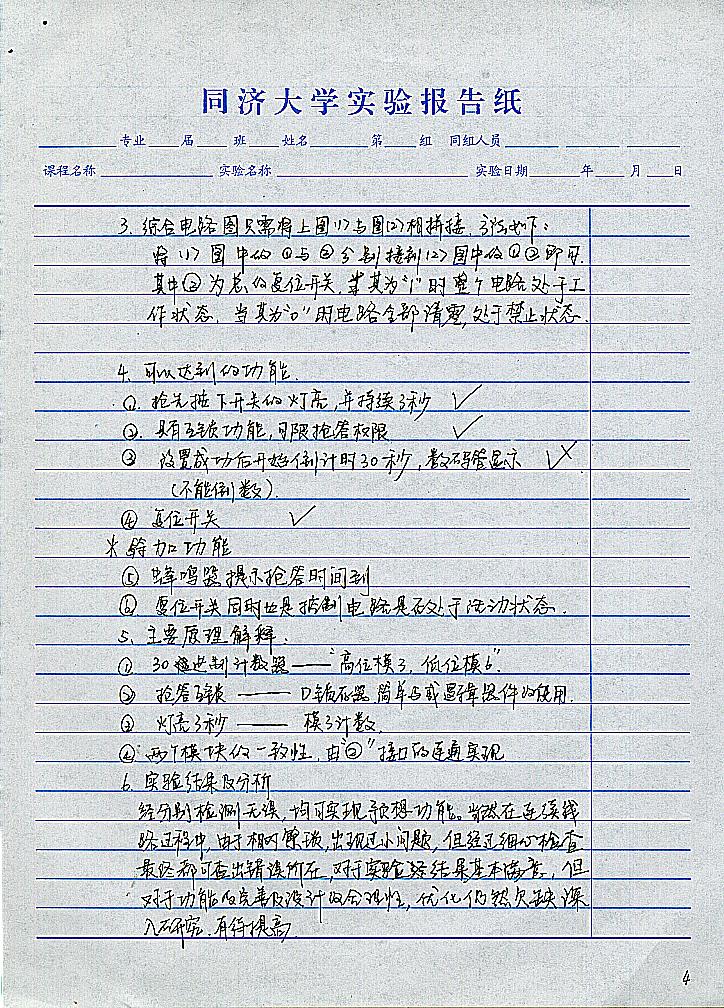 同济大学实验报告纸
专业 届 班 姓名 第 组 同组人员
课程名称 实验名称 实验日期 年 月 日
3. 综合电路图只需将上图(1)与图(2)相拼接. 方法如下:
将(1)图中的①与②分别接到(2)图中的①②即可.
其中②为总的复位开关, 当其为"1"时整个电路处于工
作状态. 当其为"0"时电路全部清零, 处于禁止状态.
4. 可以达到的功能.
①. 抢先按下开关的灯亮, 并持续3秒 ✓
②. 具有互锁功能, 可限抢答权限 ✓
③ 设置成功后开始倒计时30秒, 数码管显示
(不能倒数).
④ 复位开关 ✓
* 附加功能
⑤ 蜂鸣器提示抢答时间到
⑥ 复位开关同时也是控制电路是否处于活动状态.
5. 主要原理解释.
① 30进制计数器——"高位模3, 低位模6".
② 抢答互锁——D锁存器 简单与或逻辑器件的使用.
③ 灯亮3秒——模3计数.
④ 两个模块的一致性, 由"②"接口的连通实现
6. 实验结果及分析
经分别检测无误, 均可实现预想功能。当然在连接线
路过程中, 由于相对繁琐, 出现过小问题, 但经过细心检查
最终都可查出错误所在, 对于实验结果基本满意, 但
对于功能的完善及设计的合理性, 优化仍然欠缺深
入研究. 有待提高.
4